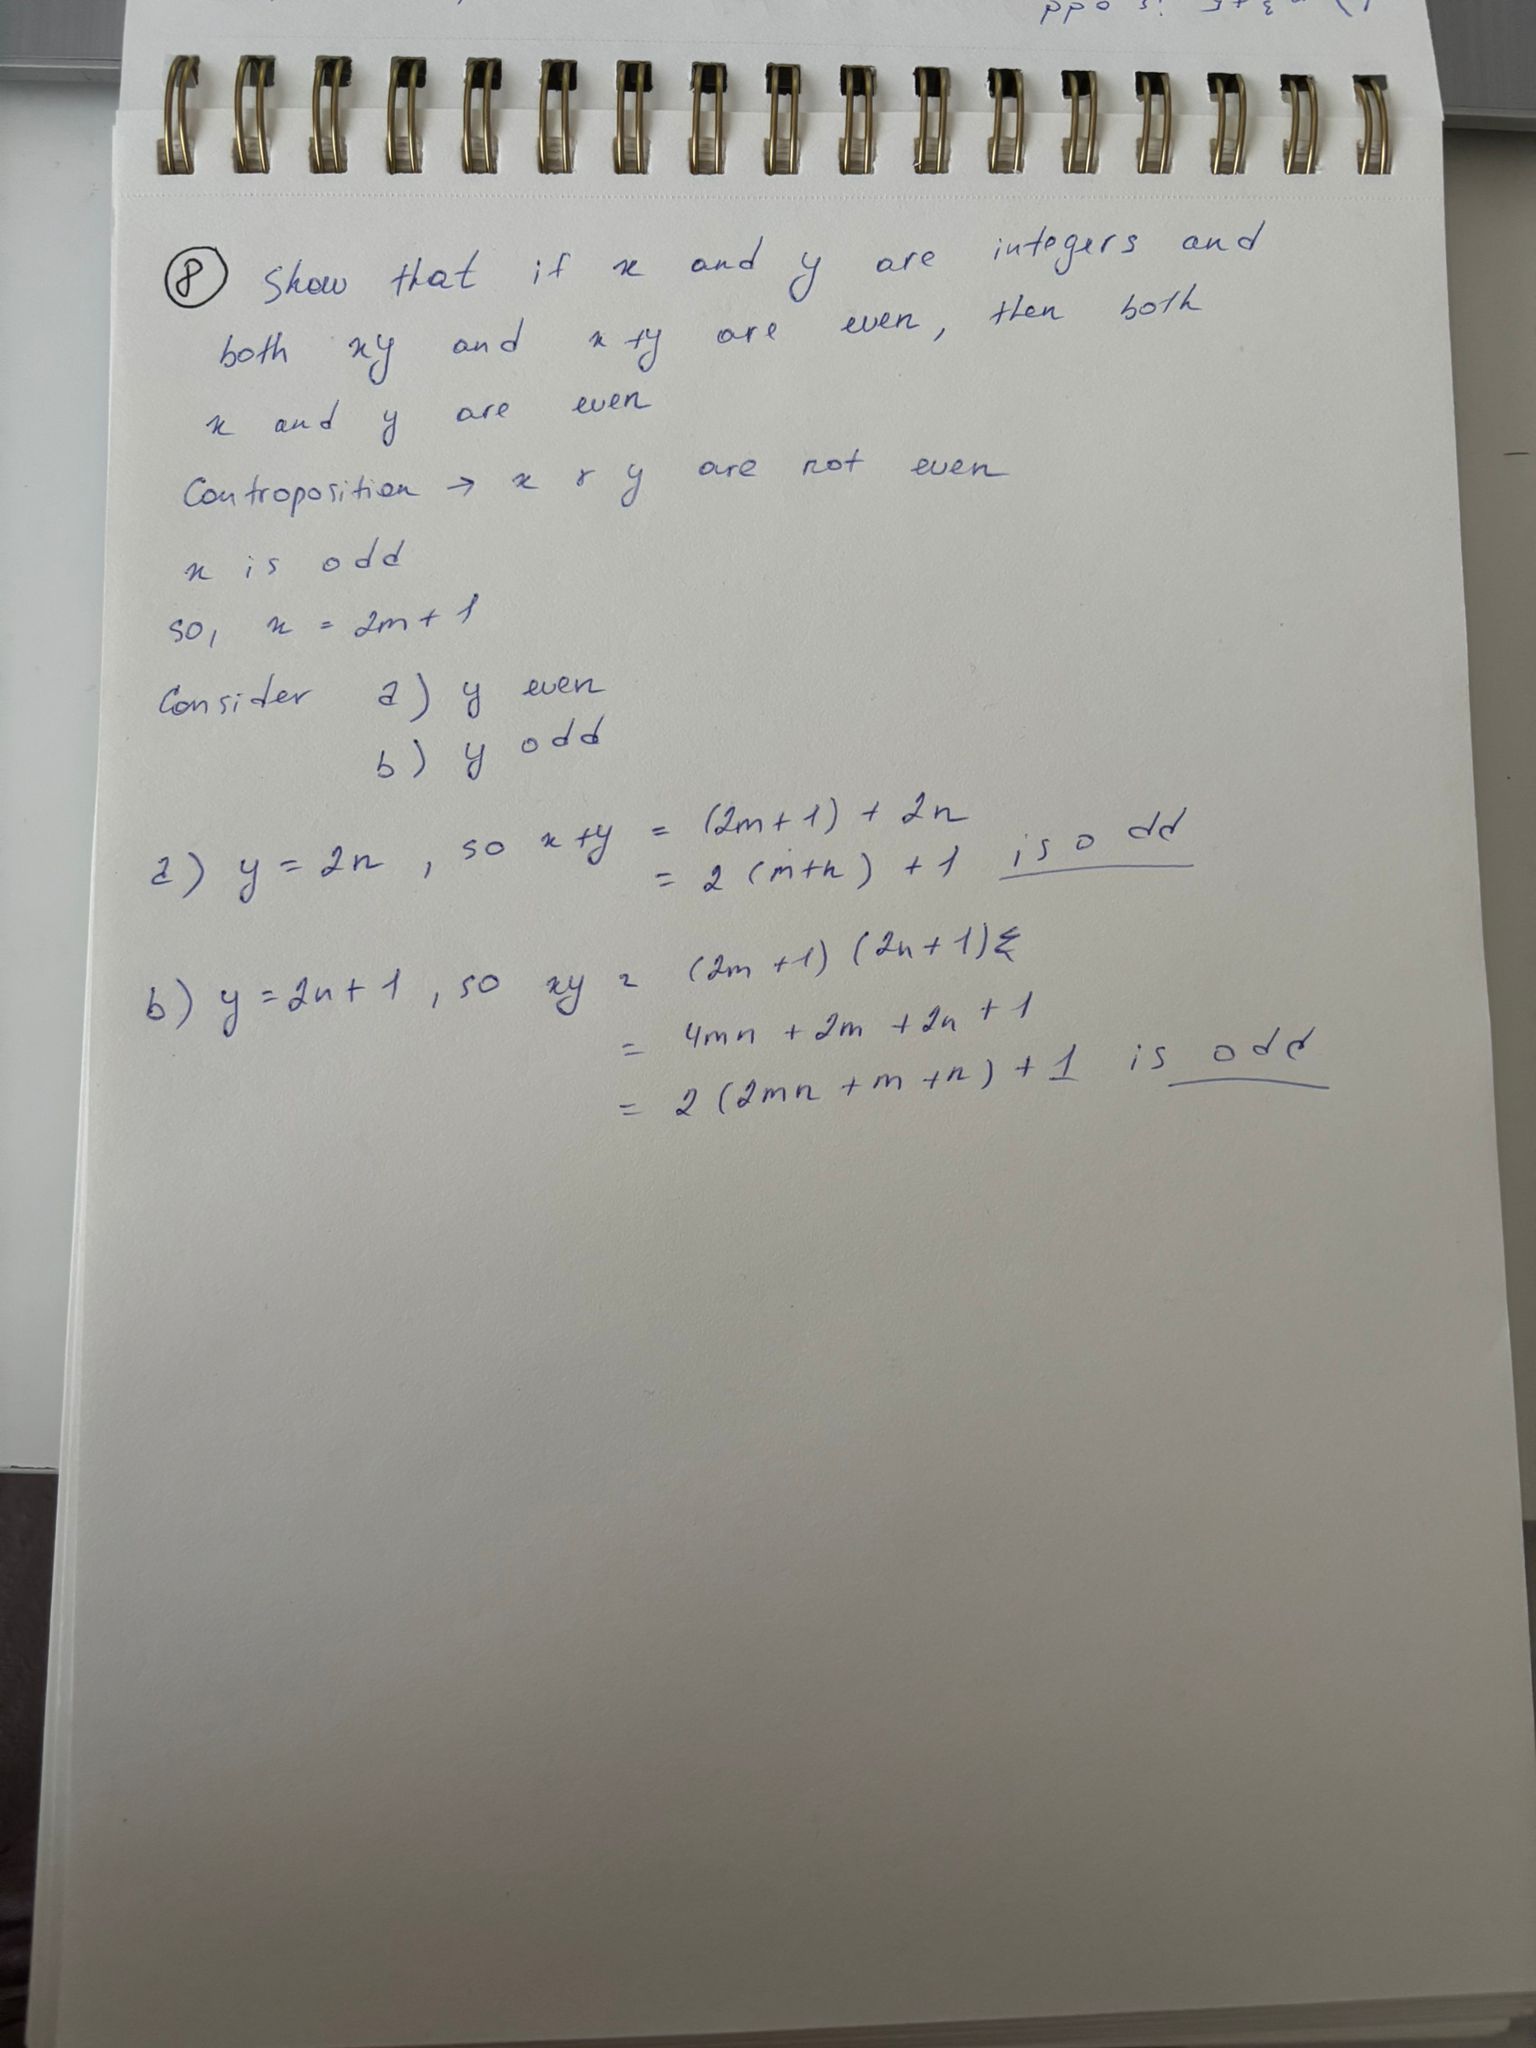 is odd
⑧ Show that if x and y are integers and
both xy and x+y are even, then both
x and y are even
Controposition → x & y are not even
x is odd
so, x = 2m+1
Consider a) y even
b) y odd
a) y = 2n, so x+y = (2m+1) + 2n
= 2(m+n) + 1 is odd
b) y = 2n+1, so xy = (2m+1)(2n+1)
= 4mn + 2m + 2n + 1
= 2(2mn + m + n) + 1 is odd